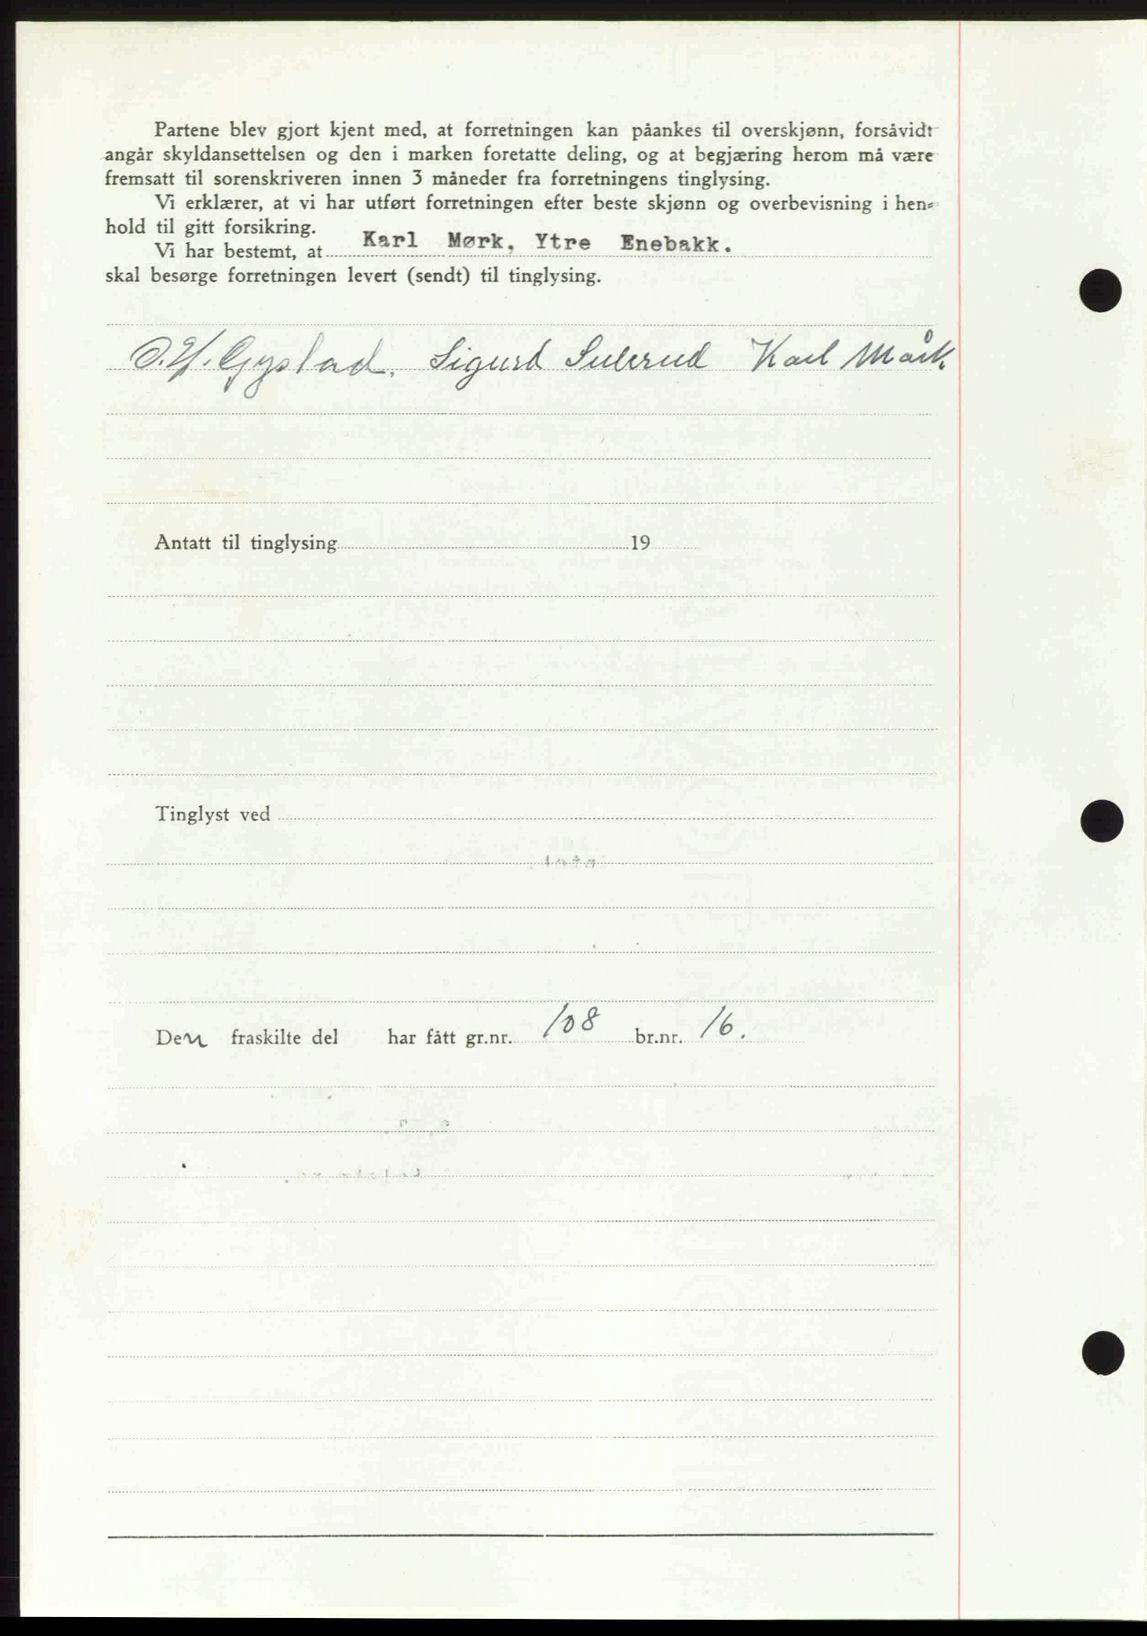 Partene blev gjort kjent med, at forretningen kan påankes til overskjønn, forsåvidt
angår skyldansettelsen og den i marken foretatte deling, og at begjæring herom må være
fremsatt til sorenskriveren innen 3 måneder fra forretningens tinglysing.
Vi erklærer, at vi har utført forretningen efter beste skjønn og overbevisning i hen-
hold til gitt forsikring.
Vi har bestemt, at Karl Mørk, Ytre Enebakk.
skal besørge forretningen levert (sendt) til tinglysing.
O. H. Gystad. Sigurd Sulerud Karl Mørk
Antatt til tinglysing 19
Tinglyst ved
Den fraskilte del har fått gr.nr. 108 br.nr. 16.